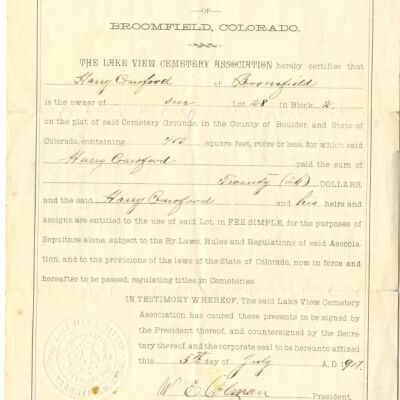 —OF—
BROOMFIELD, COLORADO.
THE LAKE VIEW CEMETERY ASSOCIATION hereby certifies that
Harry Crawford of Broomfield
is the owner of one Lot 28 in Block 2
on the plat of said Cemetery Grounds, in the County of Boulder, and State of
Colorado, containing 400 square feet, more or less, for which said
Harry Crawford paid the sum of
Twenty (20) DOLLARS,
and the said Harry Crawford and his heirs and
assigns are entitled to the use of said Lot, in FEE SIMPLE, for the purposes of
Sepulture alone, subject to the By-Laws, Rules and Regulations of said Associa-
tion, and to the provisions of the laws of the State of Colorado, now in force and
hereafter to be passed, regulating titles in Cemeteries.
IN TESTIMONY WHEREOF, The said Lake View Cemetery
Association has caused these presents to be signed by
the President thereof, and countersigned by the Secre-
tary thereof, and the corporate seal to be hereunto affixed
this 5th day of July A. D. 1907.
W. E. Colman President